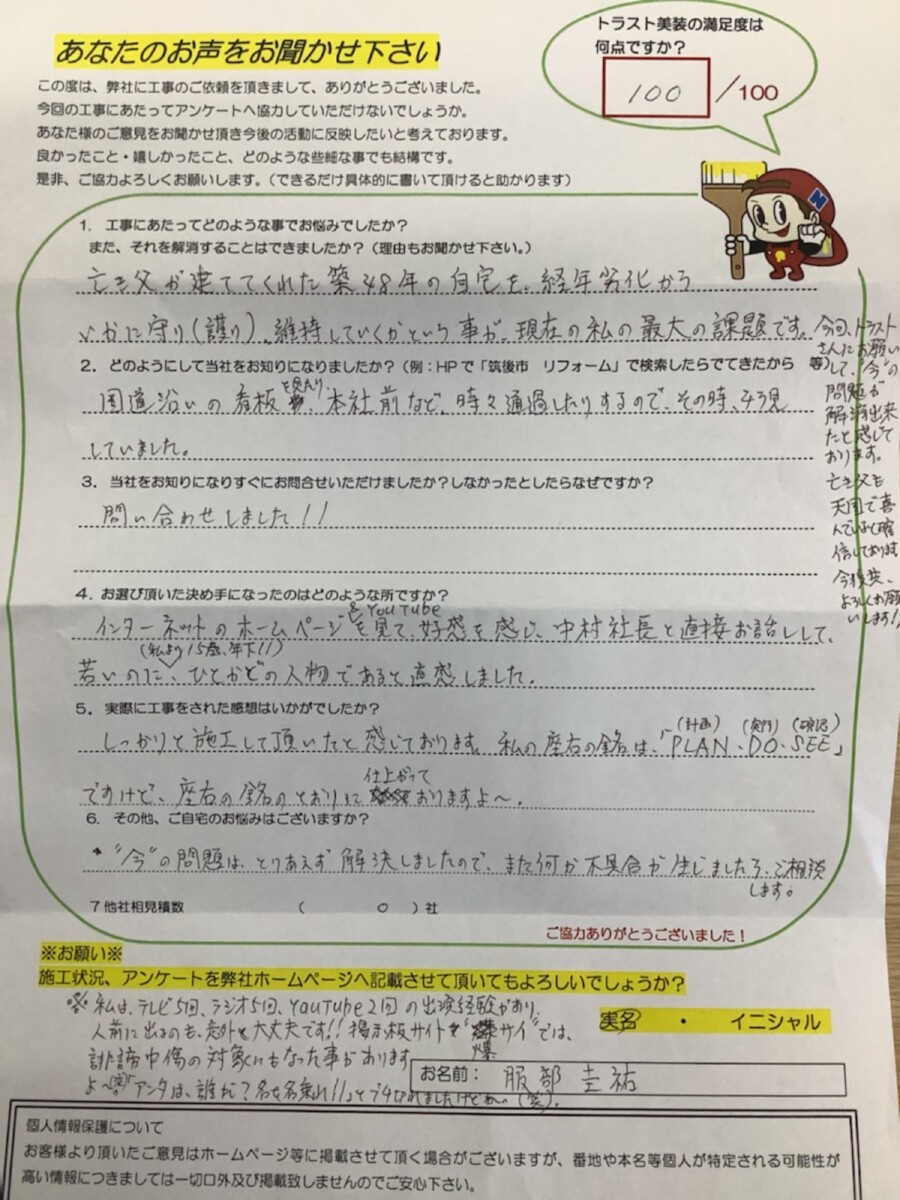 あなたのお声をお聞かせ下さい
トラスト美装の満足度は
何点ですか？
100／100
この度は、弊社に工事のご依頼を頂きまして、ありがとうございました。
今回の工事にあたってアンケートへ協力していただけないでしょうか。
あなた様のご意見をお聞かせ頂き今後の活動に反映したいと考えております。
良かったこと・嬉しかったこと、どのような些細な事でも結構です。
是非、ご協力よろしくお願いします。（できるだけ具体的に書いて頂けると助かります）
N
1．工事にあたってどのような事でお悩みでしたか？
また、それを解消することはできましたか？（理由もお聞かせ下さい。）
亡き父が建ててくれた築48年の自宅を、経年劣化から
いかに守り（護り）、維持していくかという事が、現在の私の最大の課題です。
今回、トラスト
さんにお願い
して、“今”の
問題が
解消出来
たと感じて
おります。
亡き父も
天国で喜
んでいると確
信しております
今後共、
よろしくお願
いします!!
2．どのようにして当社をお知りになりましたか？（例：HPで「筑後市　リフォーム」で検索したらでてきたから　等）
国道沿いの看板を見たり、本社前など、時々通過したりするので、その時、チラ見
していました。
3．当社をお知りになりすぐにお問合せいただけましたか？しなかったとしたらなぜですか？
問い合わせしました!!
4．お選び頂いた決め手になったのはどのような所ですか？
インターネットのホームページ&YouTubeを見て、好感を感じ、中村社長と直接お話しして、
（私より15歳、年下!!）
若いのに、ひとかどの人物であると直感しました。
5．実際に工事をされた感想はいかがでしたか？
しっかりと施工して頂いたと感じております。私の座右の銘は、「PLAN（計画）・DO（実行）・SEE（確認）」
ですけど、座右の銘のとおりに仕上がっておりますよ〜。
6．その他、ご自宅のお悩みはございますか？
“今”の問題は、とりあえず解決しましたので、また何か不具合が生じましたら、ご相談
します。
7 他社相見積数　（　0　）社
ご協力ありがとうございました！
※お願い※
施工状況、アンケートを弊社ホームページへ記載させて頂いてもよろしいでしょうか？
実名　・　イニシャル
※私は、テレビ5回、ラジオ5回、YouTube2回の出演経験があり、
人前に出るのも、意外と大丈夫です!!掲示板サイト“爆サイ”では、
誹謗中傷の対象にもなった事があります
よ〜（笑）「アンタは、誰だ？名を名乗れ!!」と
（笑）。
お名前：　服部圭祐
個人情報保護について
お客様より頂いたご意見はホームページ等に掲載させて頂く場合がございますが、番地や本名等個人が特定される可能性が
高い情報につきましては一切口外及び掲載致しませんのでご安心下さい。